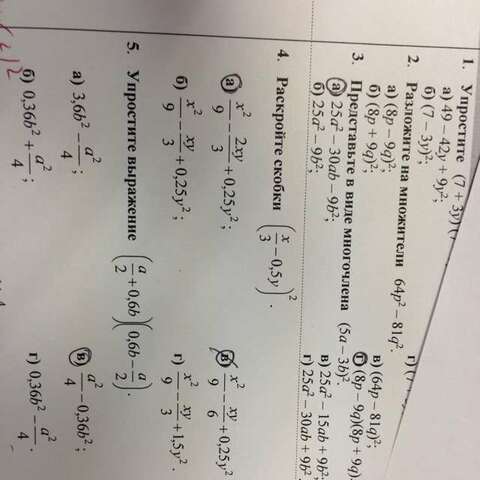 1. Упростите (7 + 3y)(7
а) 49 − 42y + 9y²;
б) (7 − 3y)²;
г) (7
2. Разложите на множители 64p² − 81q².
а) (8p − 9q)²;
б) (8p + 9q)²;
в) (64p − 81q)²;
г) (8p − 9q)(8p + 9q).
3. Представьте в виде многочлена (5a − 3b)².
а) 25a² − 30ab − 9b²;
б) 25a² − 9b²;
в) 25a² − 15ab + 9b²;
г) 25a² − 30ab + 9b².
4. Раскройте скобки (x/3 − 0,5y)².
а) x²/9 − 2xy/3 + 0,25y²;
б) x²/9 − xy/3 + 0,25y²;
в) x²/9 − xy/6 + 0,25y²
г) x²/9 − xy/3 + 1,5y².
5. Упростите выражение (a/2 + 0,6b)(0,6b − a/2).
а) 3,6b² − a²/4;
б) 0,36b² + a²/4;
в) a²/4 − 0,36b²;
г) 0,36b² − a²/4.